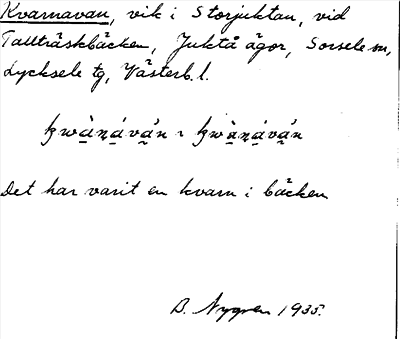 Kvarnavan, vik i Storjuktan, vid
Tallträskbäcken, Juktå ägor, Sorsele sn,
Lycksele tg, Västerb. l.
Det har varit en kvarn i bäcken
B. Nygren 1935.